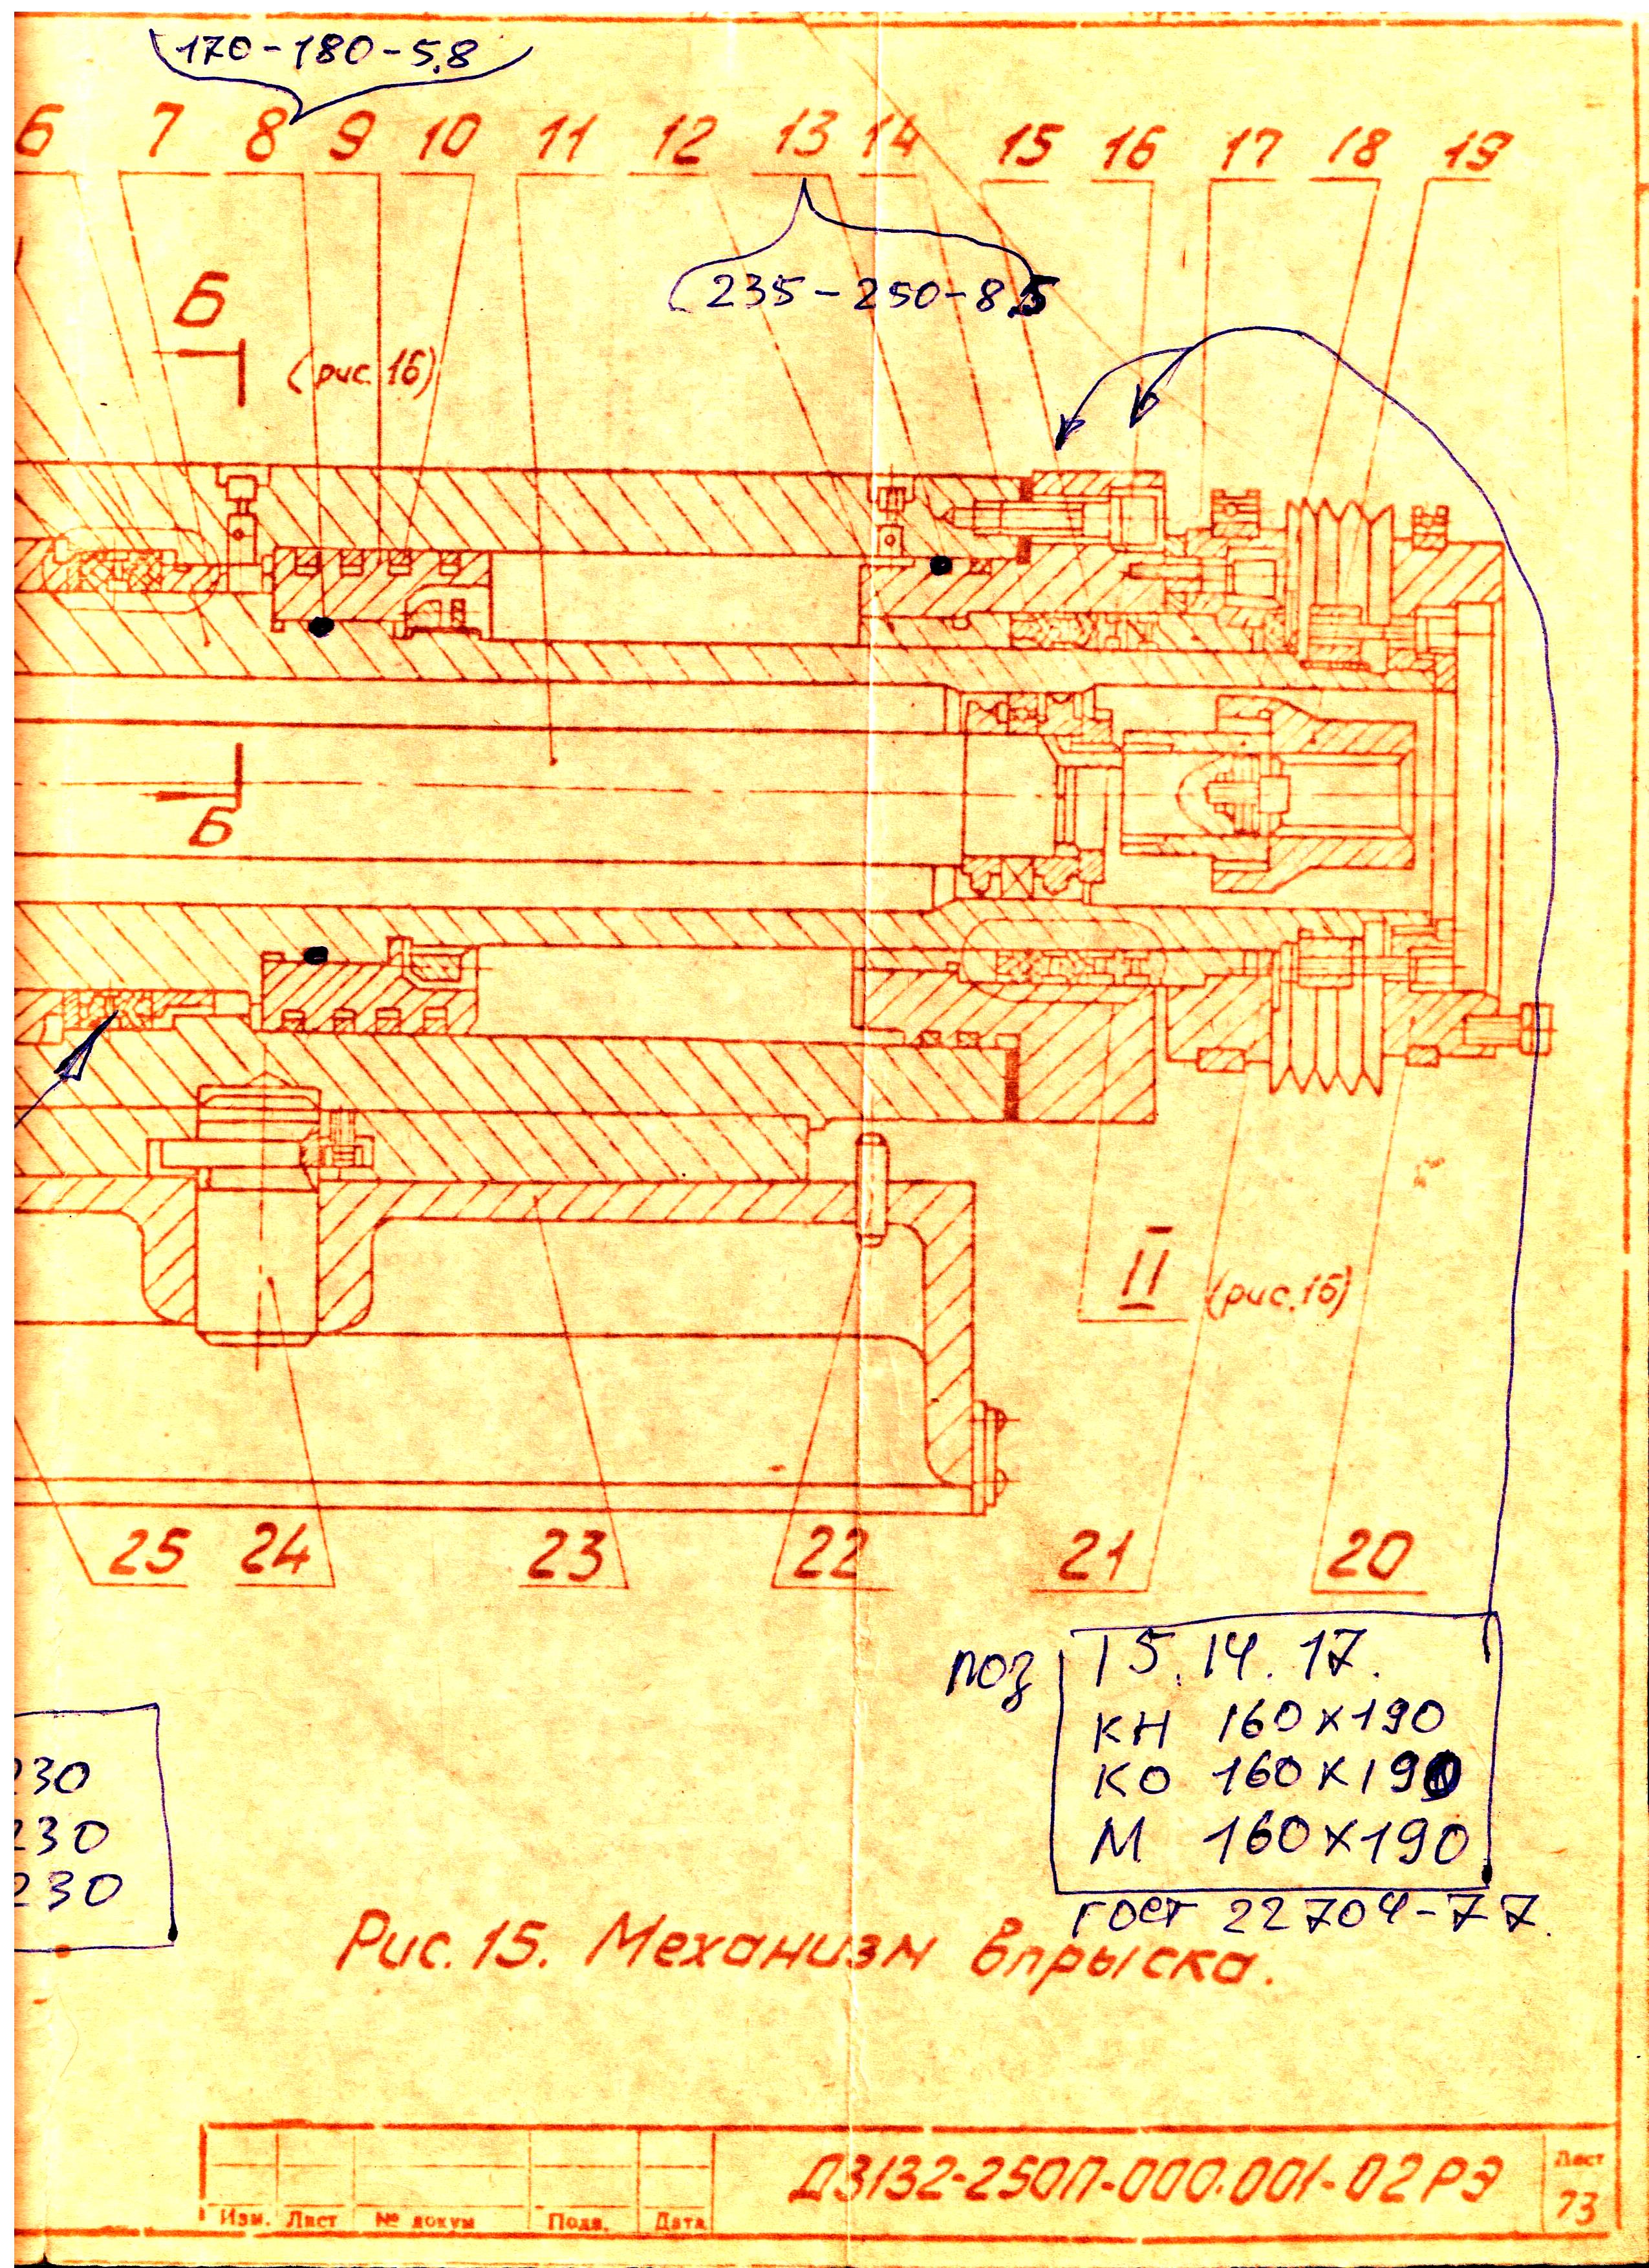 170-180-5,8
6 7 8 9 10 11 12 13 14 15 16 17 18 19
235-250-8,5
Б
(рис.16)
Б
II (рис.16)
25 24 23 22 21 20
поз 15. 14. 17.
КН 160х190
КО 160х190
М 160х190
ГОСТ 22704-77.
230
230
230
Рис.15. Механизм впрыска.
Д3132-250П-000.001-02РЭ
Лист
73
Изм. Лист № докум Подп. Дата